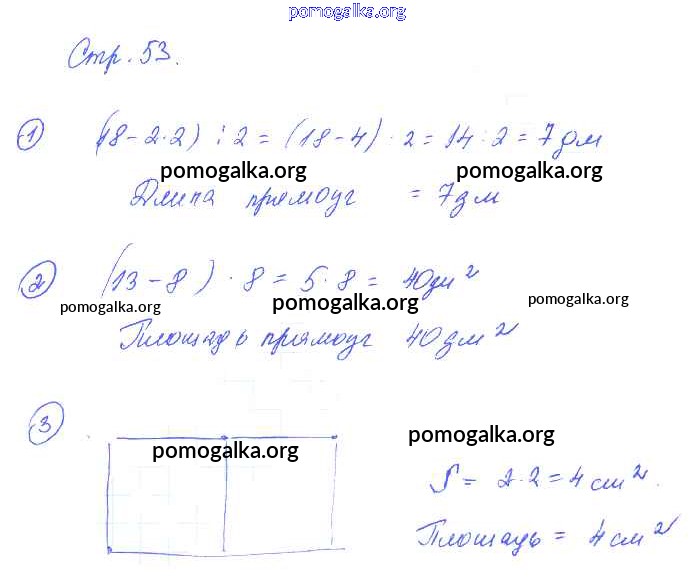 pomogalka.org
Стр. 53.
1 (18 - 2·2) : 2 = (18 - 4) · 2 = 14 : 2 = 7 дм
pomogalka.org pomogalka.org
Длина прямоуг = 7 дм
2 (13 - 8) · 8 = 5 · 8 = 40 дм²
pomogalka.org pomogalka.org pomogalka.org
Площадь прямоуг 40 дм²
3
pomogalka.org pomogalka.org
S = 2·2 = 4 см².
Площадь = 4 см²